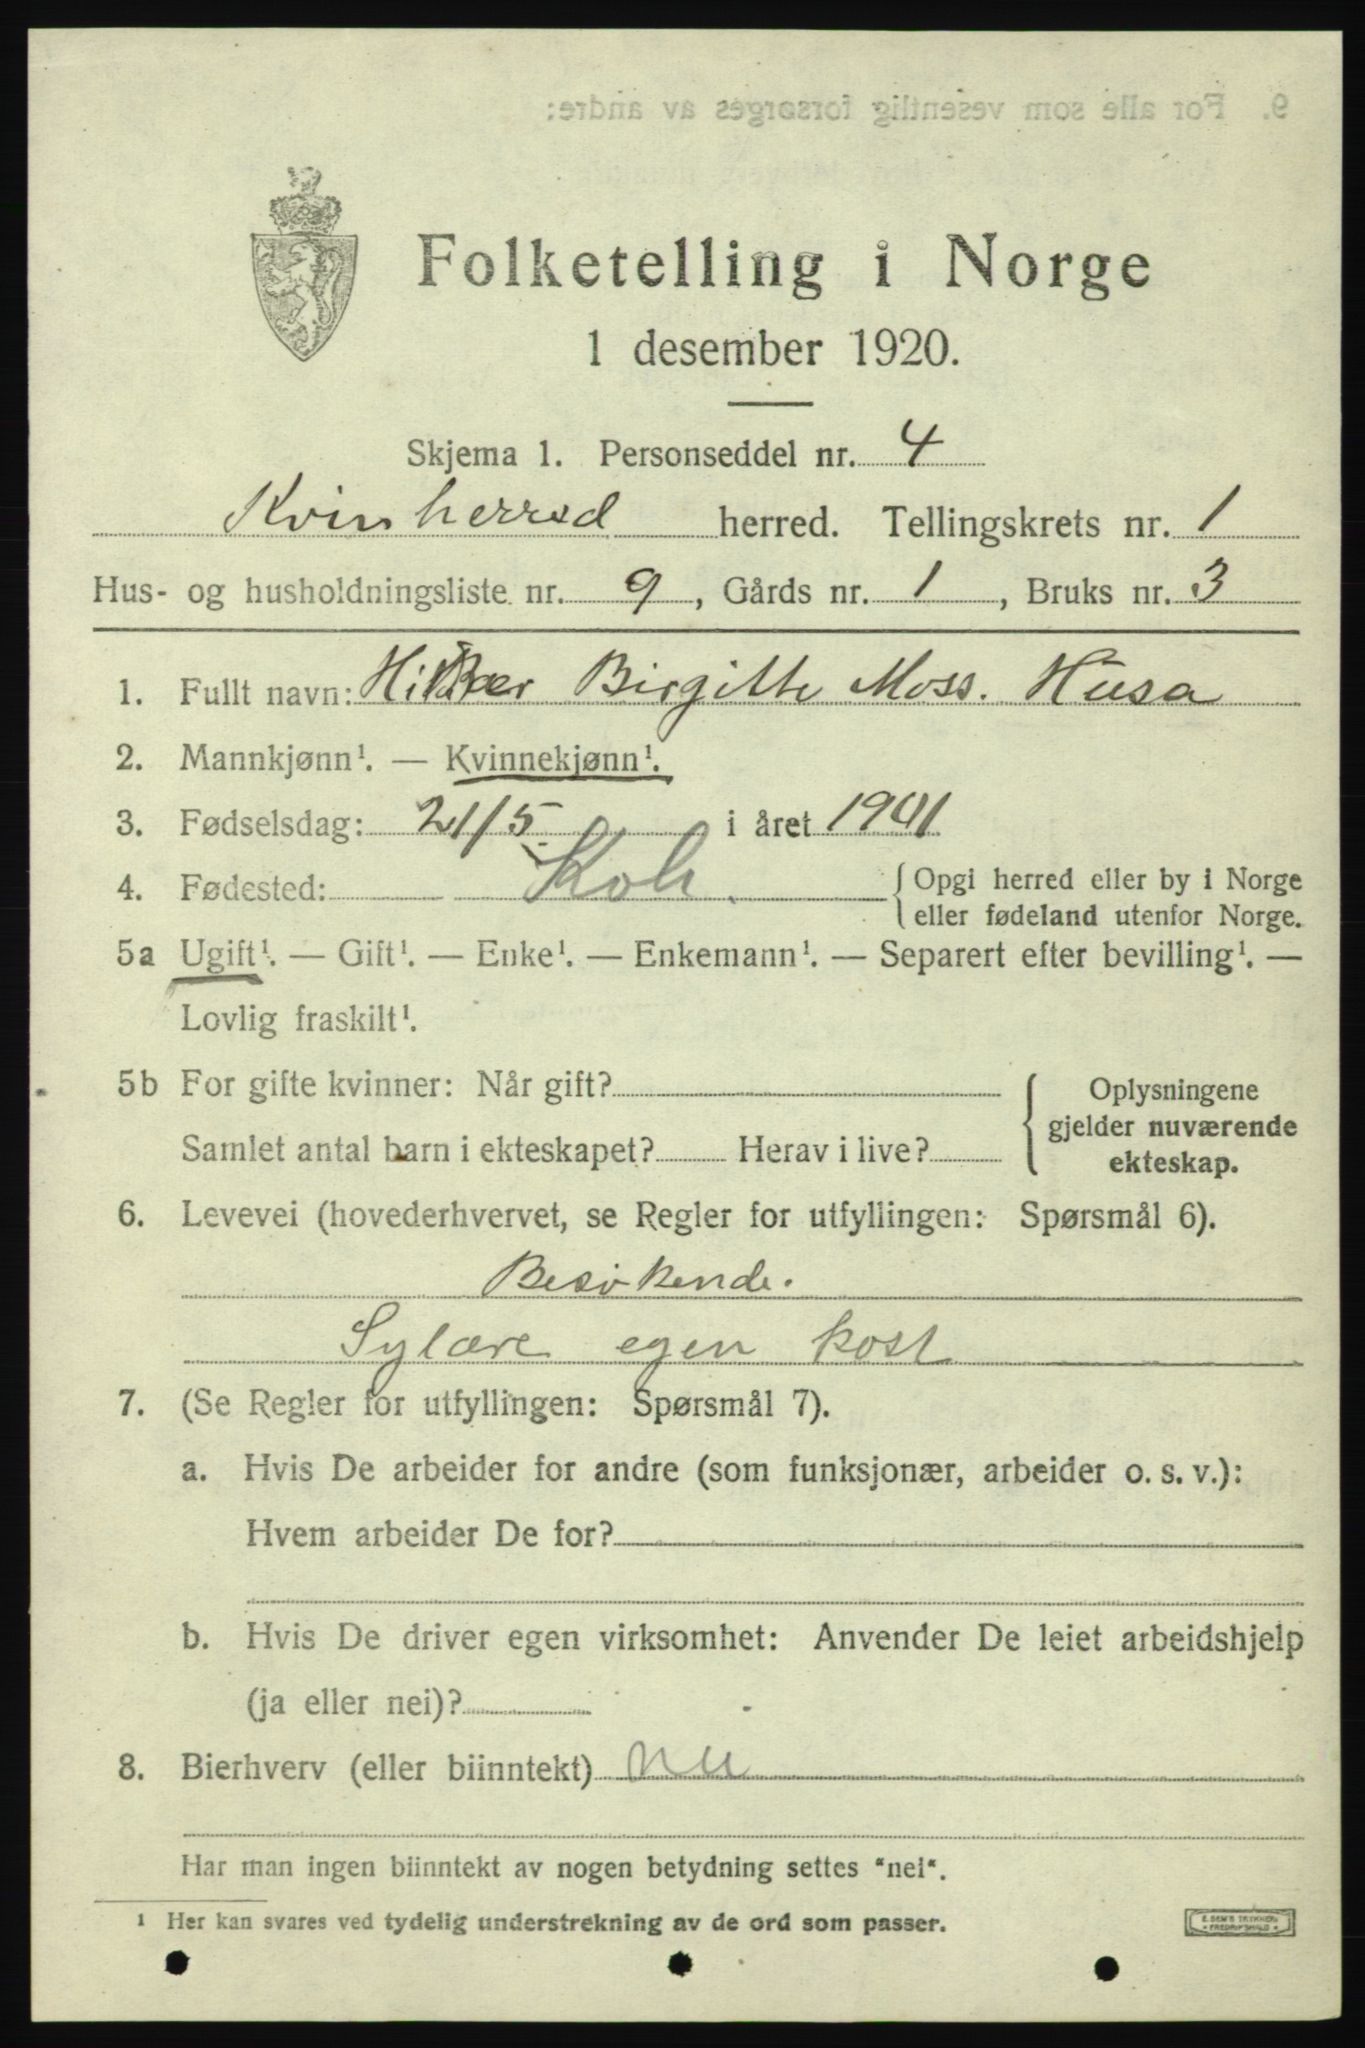 Folketelling i Norge
1 desember 1920.
Skjema 1. Personseddel nr. 4
Kvinherred herred. Tellingskrets nr. 1
Hus- og husholdningsliste nr. 9, Gårds nr. 1, Bruks nr. 3
1. Fullt navn: Birgitte Moss. Husa
2. Mannkjønn¹. — Kvinnekjønn¹.
3. Fødselsdag: 21/5 i året 1901
4. Fødested: { Opgi herred eller by i Norge
eller fødeland utenfor Norge.
5a Ugift¹. — Gift¹. — Enke¹. — Enkemann¹. — Separert efter bevilling¹. —
Lovlig fraskilt¹.
5b For gifte kvinner: Når gift?
Samlet antal barn i ekteskapet? Herav i live?
Oplysningene
gjelder nuværende
ekteskap.
6. Levevei (hovederhvervet, se Regler for utfyllingen: Spørsmål 6).
Besøkende.
Sylære egen kost
7. (Se Regler for utfyllingen: Spørsmål 7).
a. Hvis De arbeider for andre (som funksjonær, arbeider o. s. v.):
Hvem arbeider De for?
b. Hvis De driver egen virksomhet: Anvender De leiet arbeidshjelp
(ja eller nei)?
8. Bierhverv (eller biinntekt)
Har man ingen biinntekt av nogen betydning settes "nei".
¹ Her kan svares ved tydelig understrekning av de ord som passer.
9. For alle som vesentlig forsørges av andre: